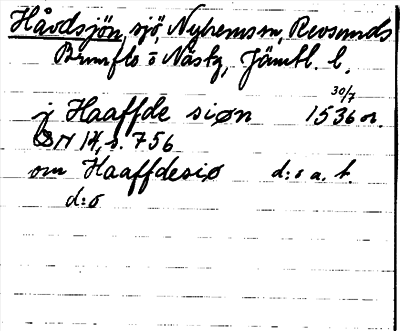 Håvdsjön, sjö, Nyhems sn, Revsunds
Brunflo o Näs tg, Jämtl. l.
30/7
j Haaffde siøn 1536 or.
DN 14, s. 756
om Haaffdesiø d:o a. st.
d:o